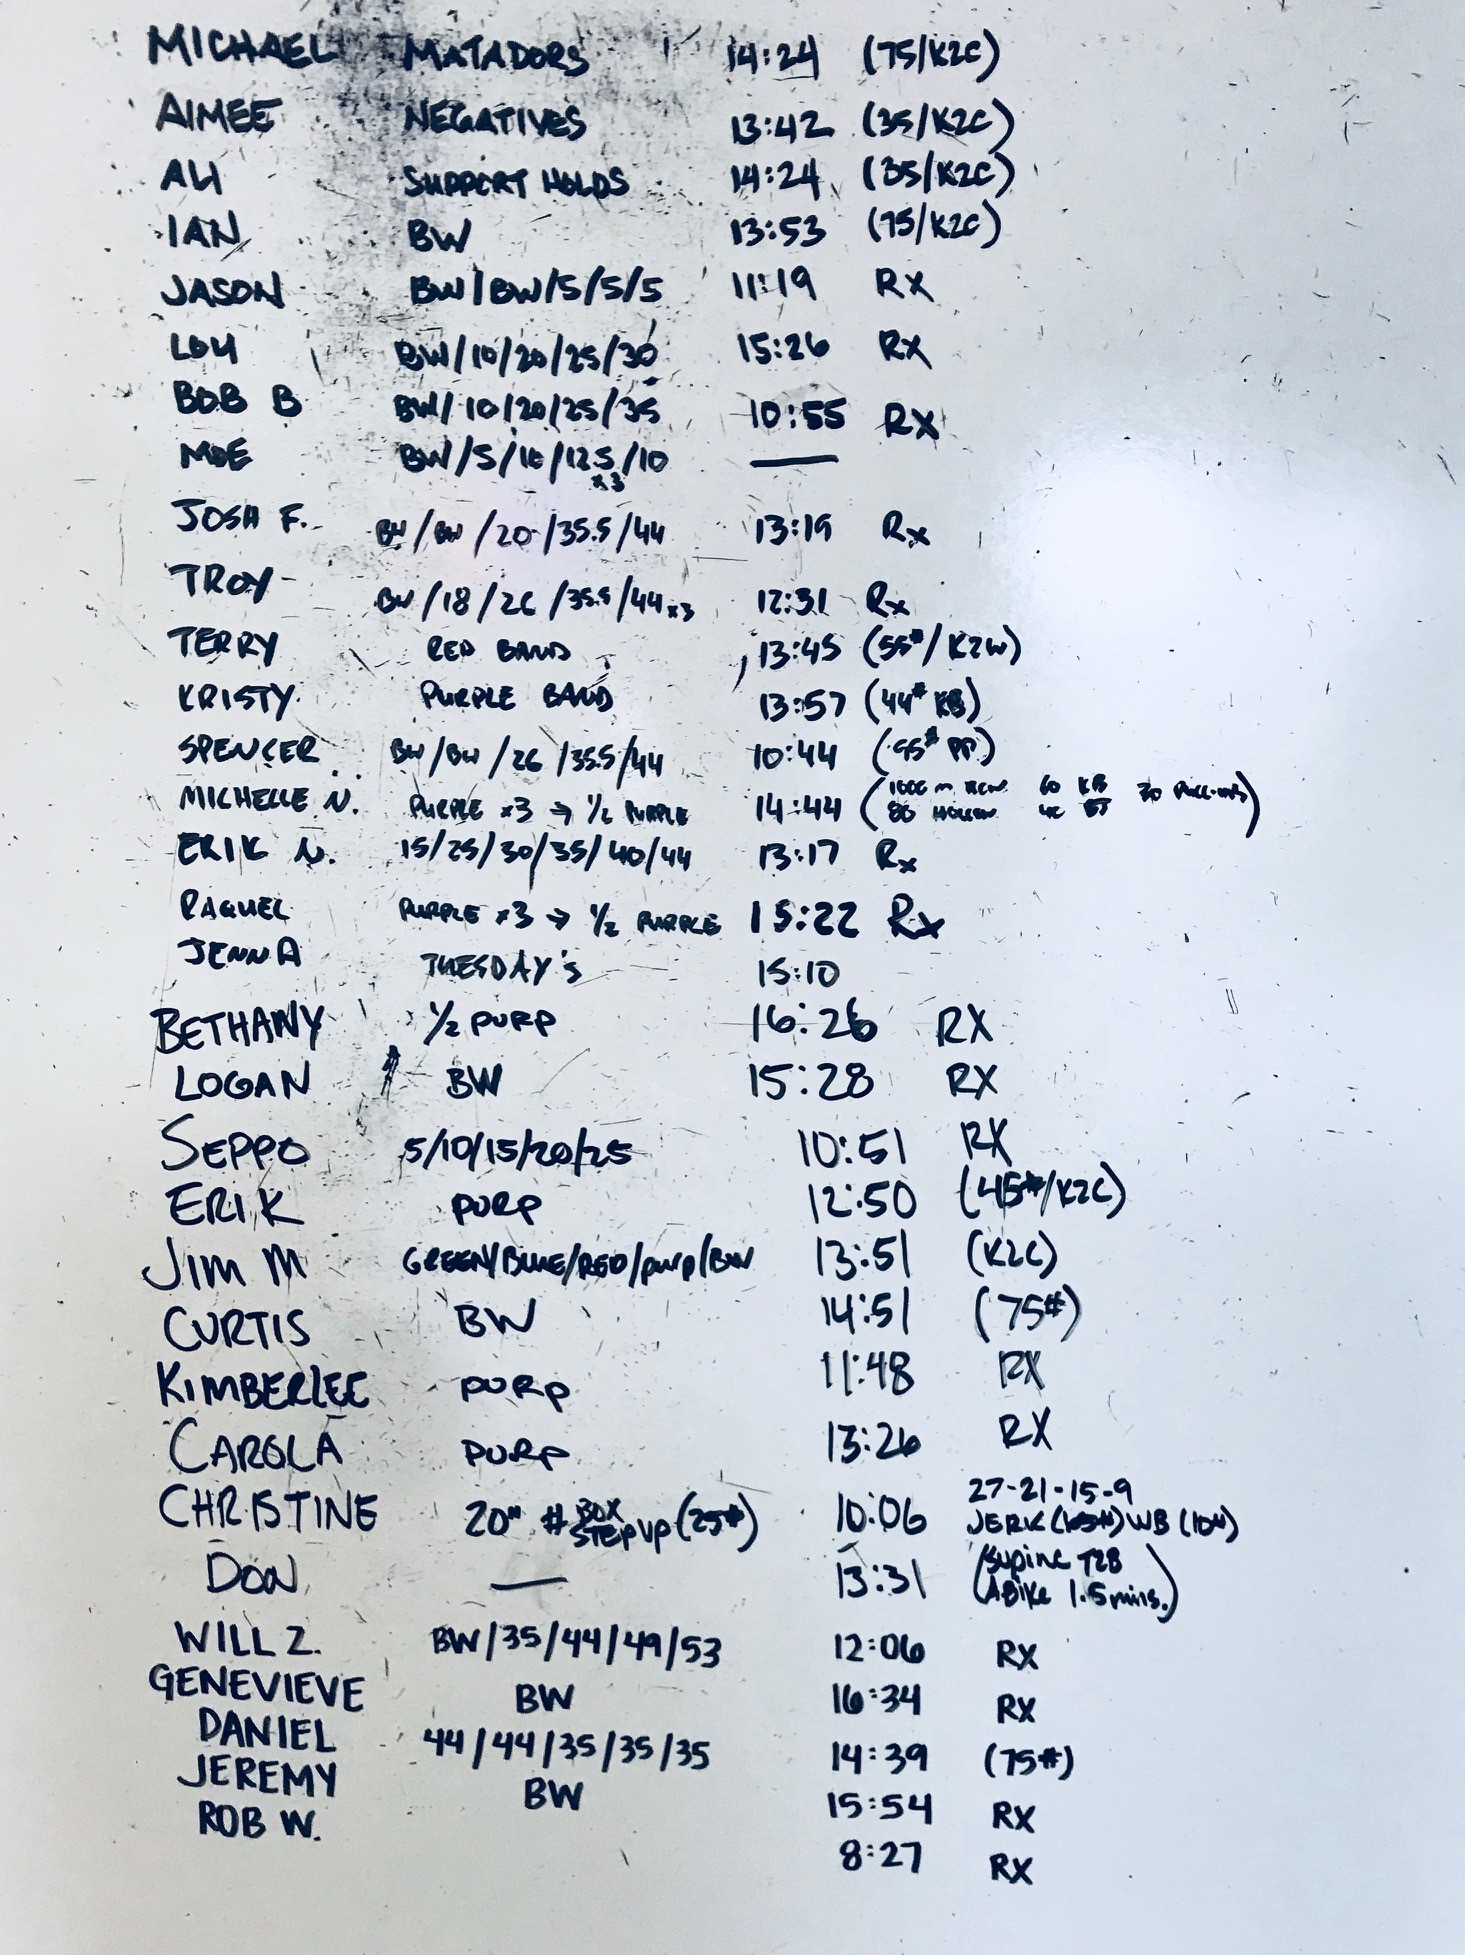 MICHAEL MATADORS 14:24 (75/K2C)
AIMEE NEGATIVES 13:42 (35/K2C)
ALI SUPPORT HOLDS 14:24 (35/K2C)
IAN BW 13:53 (75/K2C)
JASON BW/BW/5/5/5 11:19 RX
LOU BW/10/20/25/30 15:26 RX
BOB B BW/10/20/25/35 10:55 RX
MOE BW/5/10/12.5/10 —
x3
JOSH F. BW/BW/20/35.5/44 13:19 Rx
TROY BW/18/26/35.5/44 x3 12:31 Rx
TERRY RED BAND 13:45 (55#/K2W)
KRISTY PURPLE BAND 13:57 (44# KB)
SPENCER BW/BW/26/35.5/44 10:44 (95# PP)
MICHELLE N. PURPLE x3 → 1/2 PURPLE 14:44 (1000 m ROW 60 KB 30 PULL-UPS
80 HOLLOW)
ERIK N. 15/25/30/35/40/44 13:17 Rx
RAQUEL PURPLE x3 → 1/2 PURPLE 15:22 Rx
JENNA TUESDAY'S 15:10
BETHANY 1/2 PURP 16:26 RX
LOGAN BW 15:28 RX
SEPPO 5/10/15/20/25 10:51 RX
ERIK PURP 12:50 (45#/K2C)
JIM M GREEN/BLUE/RED/PURP/BW 13:51 (K2C)
CURTIS BW 14:51 (75#)
KIMBERLEE PURP 11:48 RX
CAROLA PURP 13:26 RX
CHRISTINE 20" # BOX STEP UP (25#) 10:06 27-21-15-9
JERK WB (10#)
DON — 13:31 (Supine T2B
ABike 1.5 mins.)
WILL Z. BW/35/44/49/53 12:06 RX
GENEVIEVE BW 16:34 RX
DANIEL 44/44/35/35/35 14:39 (75#)
JEREMY BW 15:54 RX
ROB W. 8:27 RX